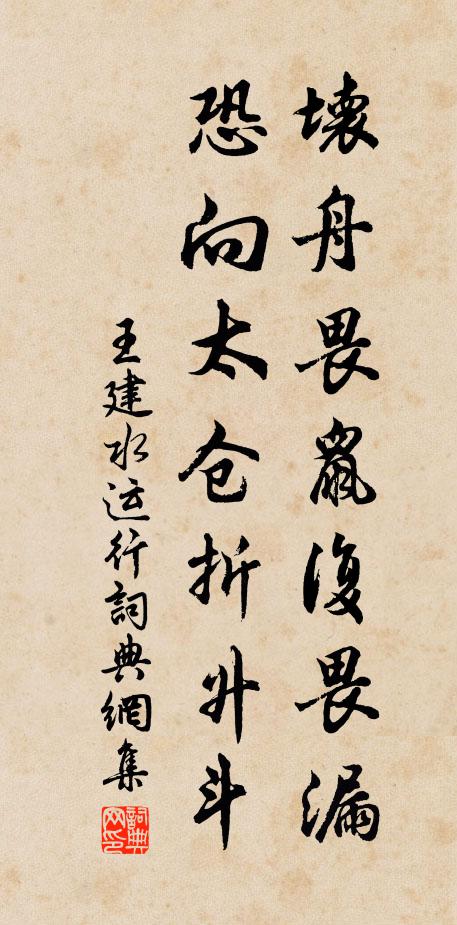 壞舟畏鼠復畏漏
恐向太仓折升斗
王建水运行詞典網集
詞典网印